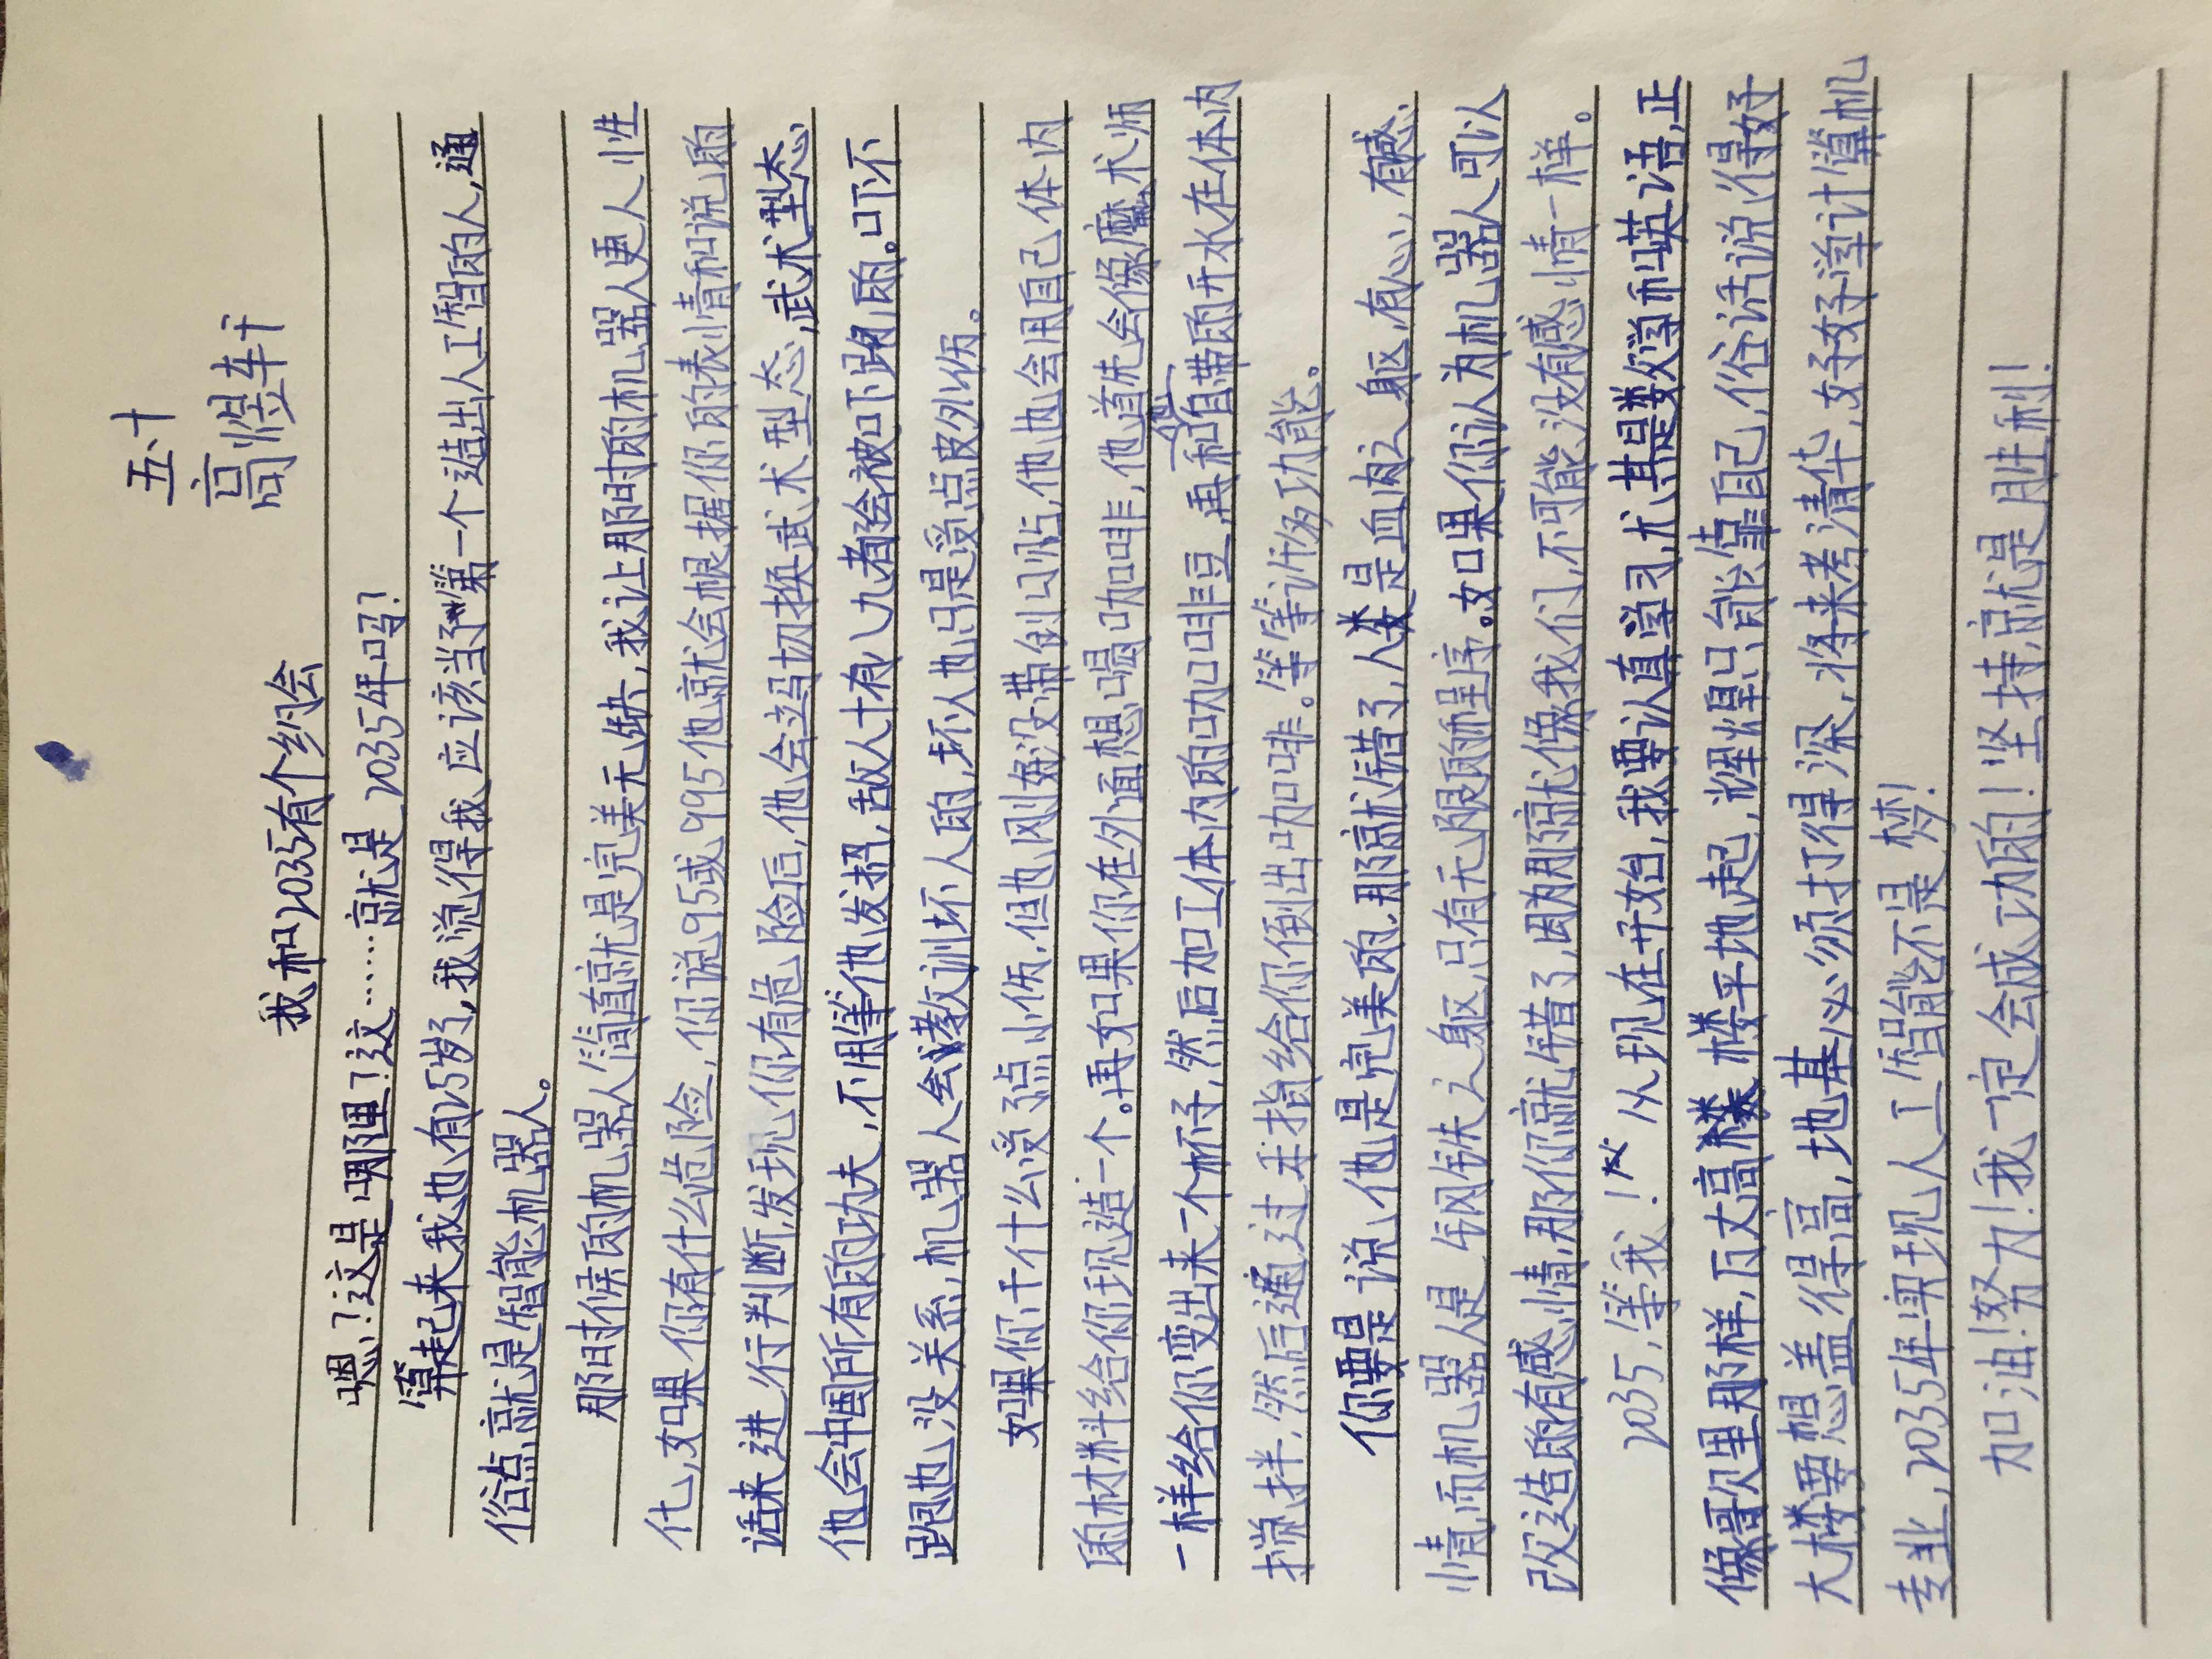 五、十
高煜轩
我和2035有个约会
嗯？这是哪里？这……就是2035年吗？
算起来我也有25岁了，我觉得我应该当了第一个造出人工智的人，通
俗点就是智能机器人。
那时候的机器人简直就是完美无缺，我让那时的机器人更人性
化，如果你有什么危险，你说995或9995他就会根据你的表情和说的
话来进行判断，发现你有危险后，他会立马切换武术型态，武术型态，
他会中国所有的功夫，不用等他发招，敌人十有八九都会被吓跑的。吓不
跑也没关系，机器人会教训坏人的，坏人也只是受点皮外伤。
如果你干什么受了点小伤，但也刚好没带创口贴，他也会用自己体内
的材料给你现造一个。再如果你在外面想喝咖啡，他首先会像魔术师
一样给你变出来一个杯子，然后加工体内的咖啡豆，再和他自带的开水在体内
搅拌，然后通过手指给你倒出咖啡。等等许多功能。
你要是说，他是完美的，那就错了，人类是血肉之躯，有心，有感
情，而机器人是钢铁之躯，只有无限的程序。如果你认为机器人可以
改造的有感情，那你就错了，因为那就像我们，不可能没有感情一样。
2035，等我！从现在开始，我要认真学习，尤其是数学和英语，正
像歌里那样，万丈高楼平地起，辉煌只能靠自己，俗话说得好
大楼要想盖得高，地基必须打得深，将来考清华，好好学计算机
专业，2035年实现人工智能不是梦！
加油！努力！我一定会成功的！坚持就是胜利！